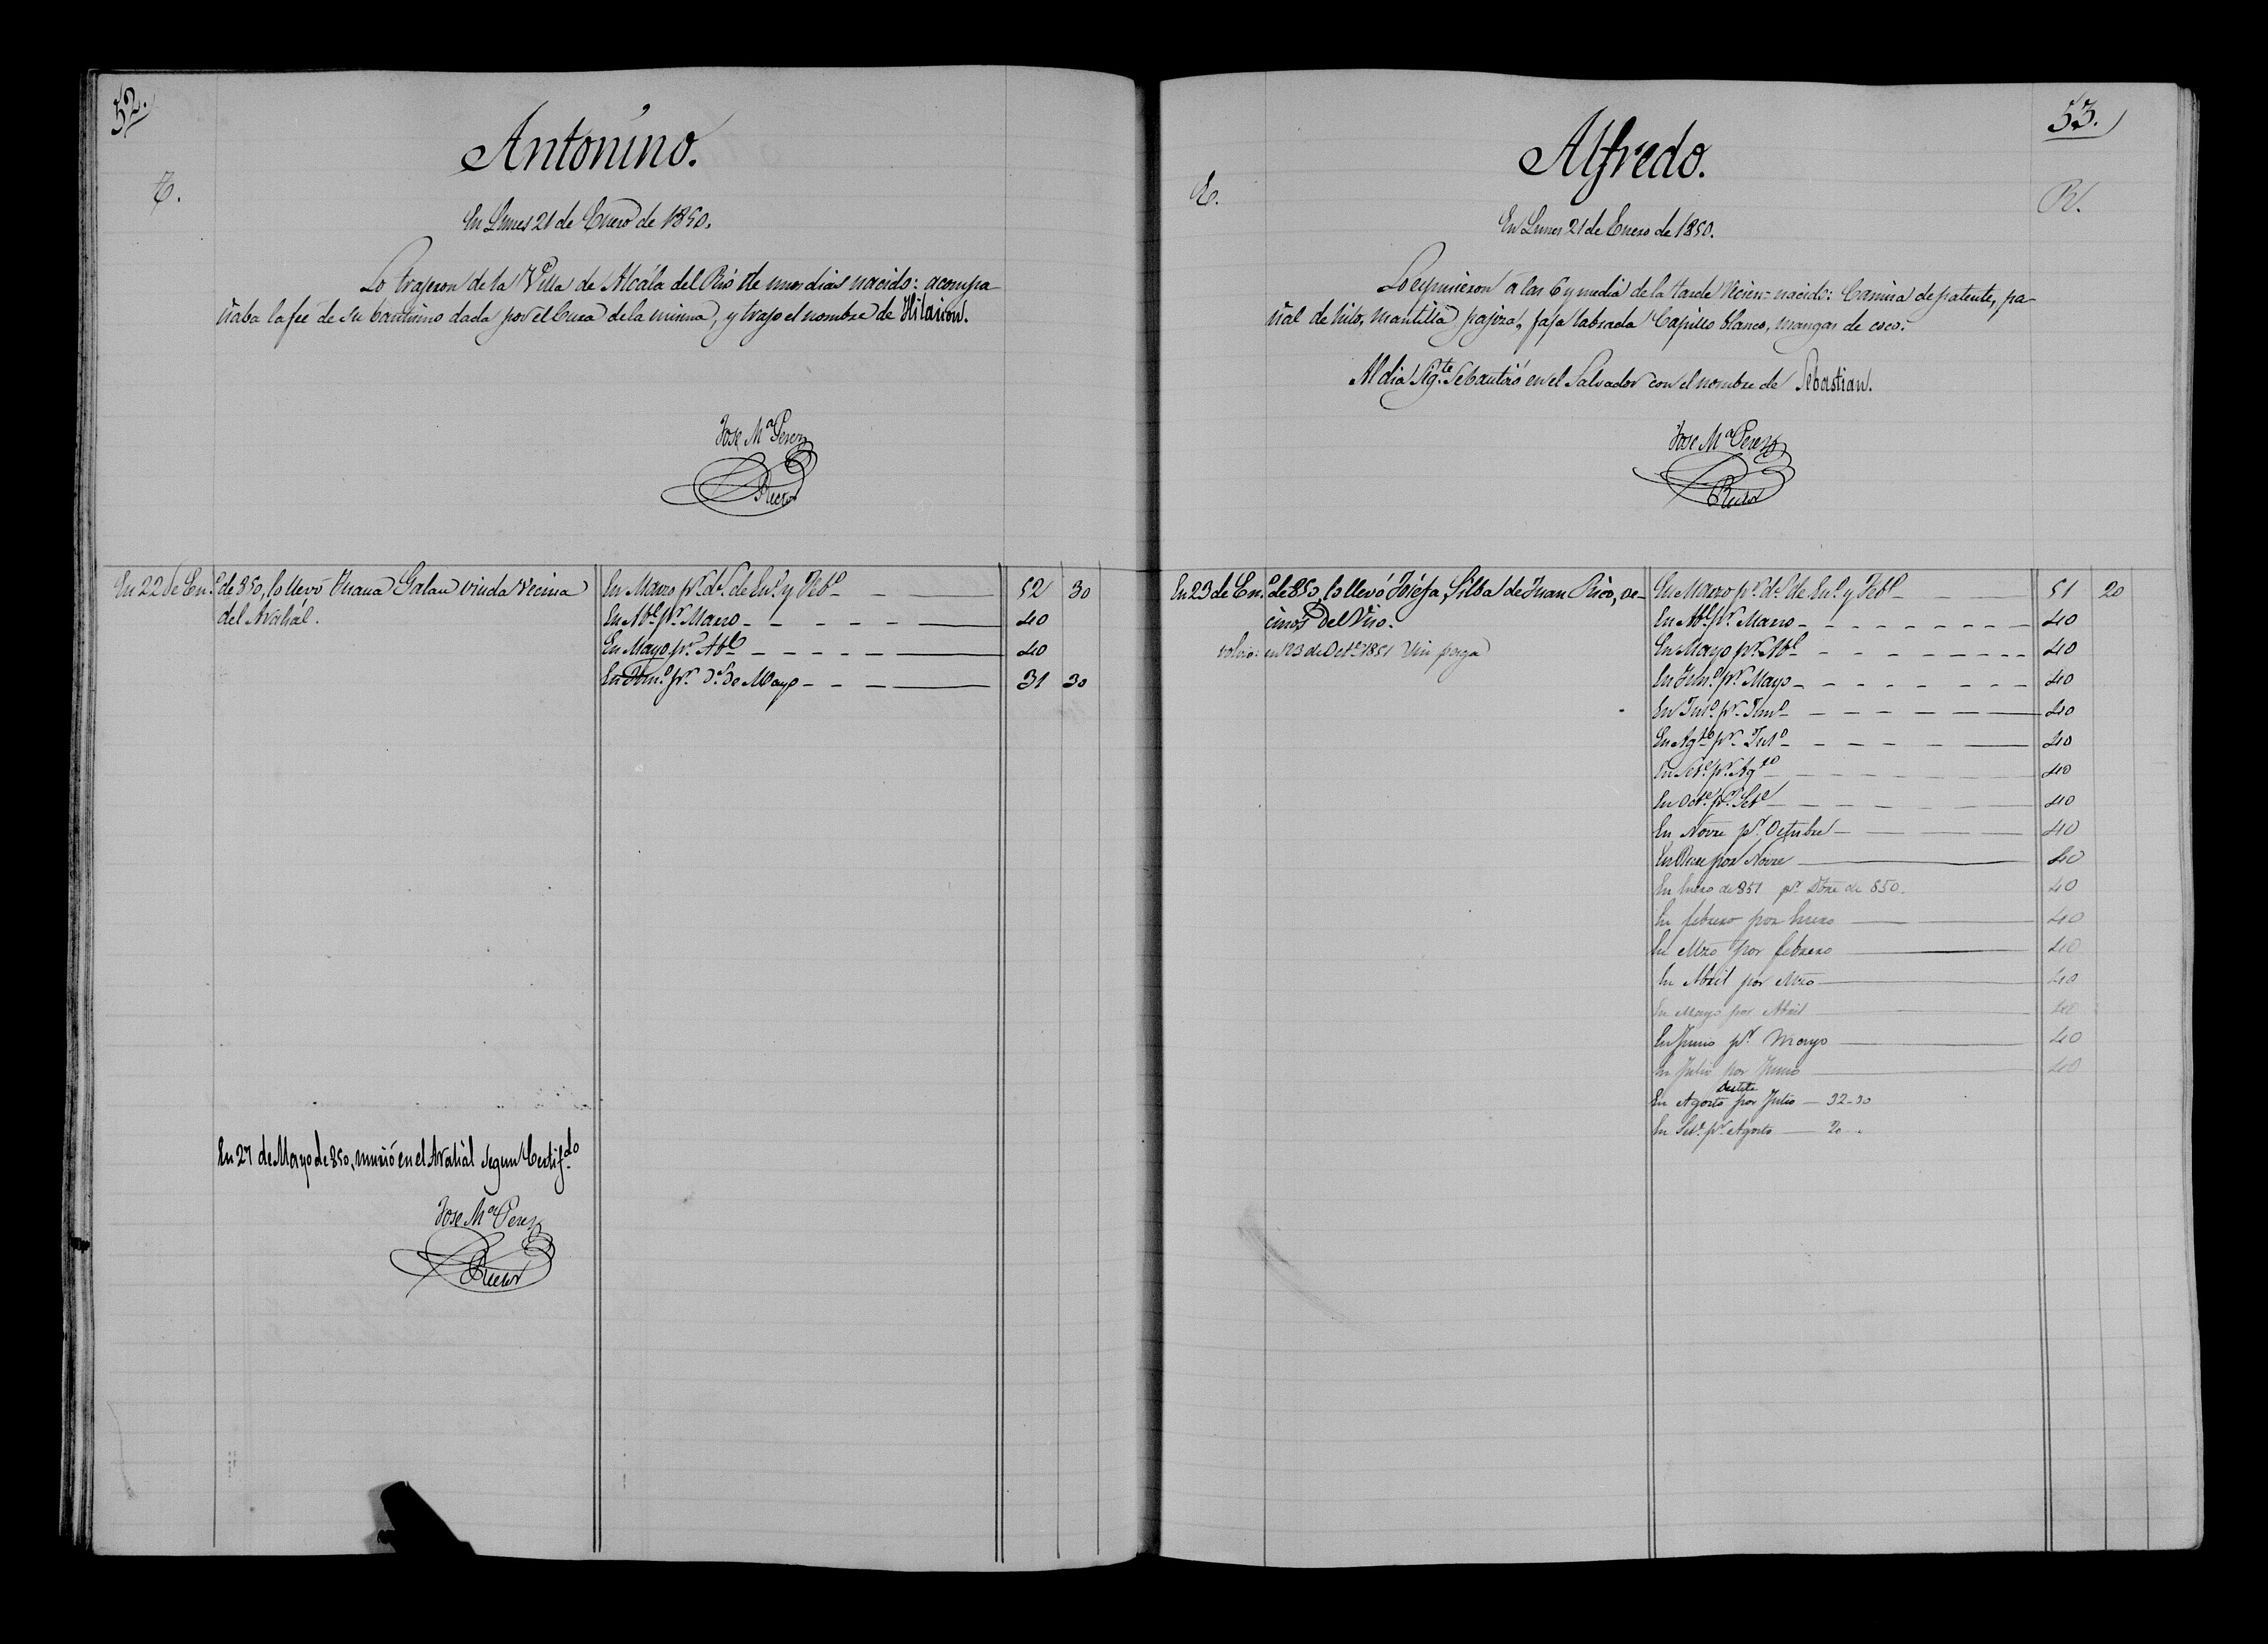 52.
Antonino.
E.
En Lunes 21 de Enero de 1850.
Lo trageron de la Villa de Alcála del Rio de unos dias nacido: acompa
ñaba la feé de su bautismo dada por el Cura de la misma, y trajo el nombre de Hilarion.
Jose Mª Perez
Rector
En 22 de En.º de 850, lo llevó Juana Galan viuda vecina
del Arahál.
En Marzo pr. ds. de En.º y Feb.º 52 30
En Ab.l pr. Marzo 40
En Mayo pr. Ab.l 40
En Jun.º pr. ds. de Mayo 31 30
En 27 de Mayo de 850, murió en el Arahál segun Certif.do
Jose Mª Perez
Rector
53.
Alfredo.
E.
En Lunes 21 de Enero de 1850.
Lo espusieron á las 6 y media de la tarde recien-nacido: Camisa de patente, pa-
ñal de hilo, mantilla pajiza, faja labrada Capillo blanco, mangas de coco.
Al dia sig.te se bautizó en el Salvador con el nombre de Sebastian.
Jose Mª Perez
Rector
En 23 de En.º de 850, lo llevó Joséfa Silba de Juan Rico, ve-
cinos del Viso.
volvio: en 23 de Oct.e 1851 sin paga
En Marzo pr. ds. de En.º y Feb.º 51 20
En Ab.l pr. Marzo 40
En Mayo pr. Ab.l 40
En Jun.º pr. Mayo 40
En Jul.º pr. Jun.º 40
En Ag.to pr. Jul.º 40
En Set.e pr. Ag.to 40
En Oct.e pr. Set.e 40
En Novre pr. Octubre 40
En Dicre por Novre 40
En Enero de 851 pr. Dbre de 850. 40
En febrero por Enero 40
En Mzo por febrero 40
En Abril por Mzo 40
En Mayo por Abril 40
En Junio pr. Mayo 40
En Julio por Junio 40
Destete
En Agosto por Julio — 32-30
En Set.e pr. Agosto — 20